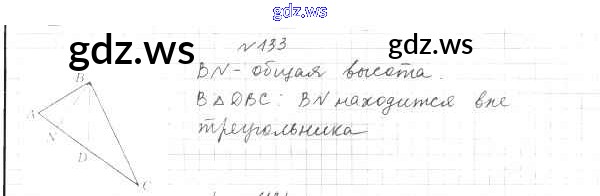 gdz.ws
№133
gdz.ws
gdz.ws
BN - общая высота.
В △DBC: BN находится вне
треугольника
B
A
N
D
C